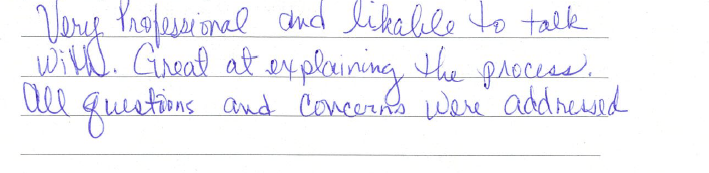 Very Professional and likable to talk
with. Great at explaining the process.
All questions and concerns were addressed